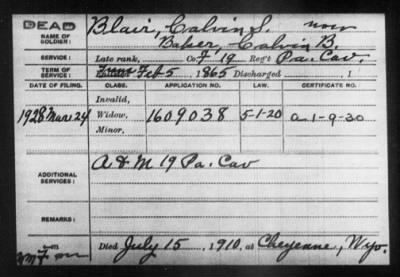 DEAD
NAME OF SOLDIER: Blair, Calvin S. now
Baker, Calvin B.
SERVICE: Late rank, Co. F 19 Reg't Pa. Cav.
TERM OF SERVICE: Feb 5 1865 Discharged 1
DATE OF FILING. CLASS. APPLICATION NO. LAW. CERTIFICATE NO.
Invalid,
1928 Mar 24 Widow, 1609038 5-1-20 a-1-9-30
Minor,
ADDITIONAL SERVICES: A & M 19 Pa. Cav
REMARKS:
Died July 15 1910, at Cheyenne, Wyo.